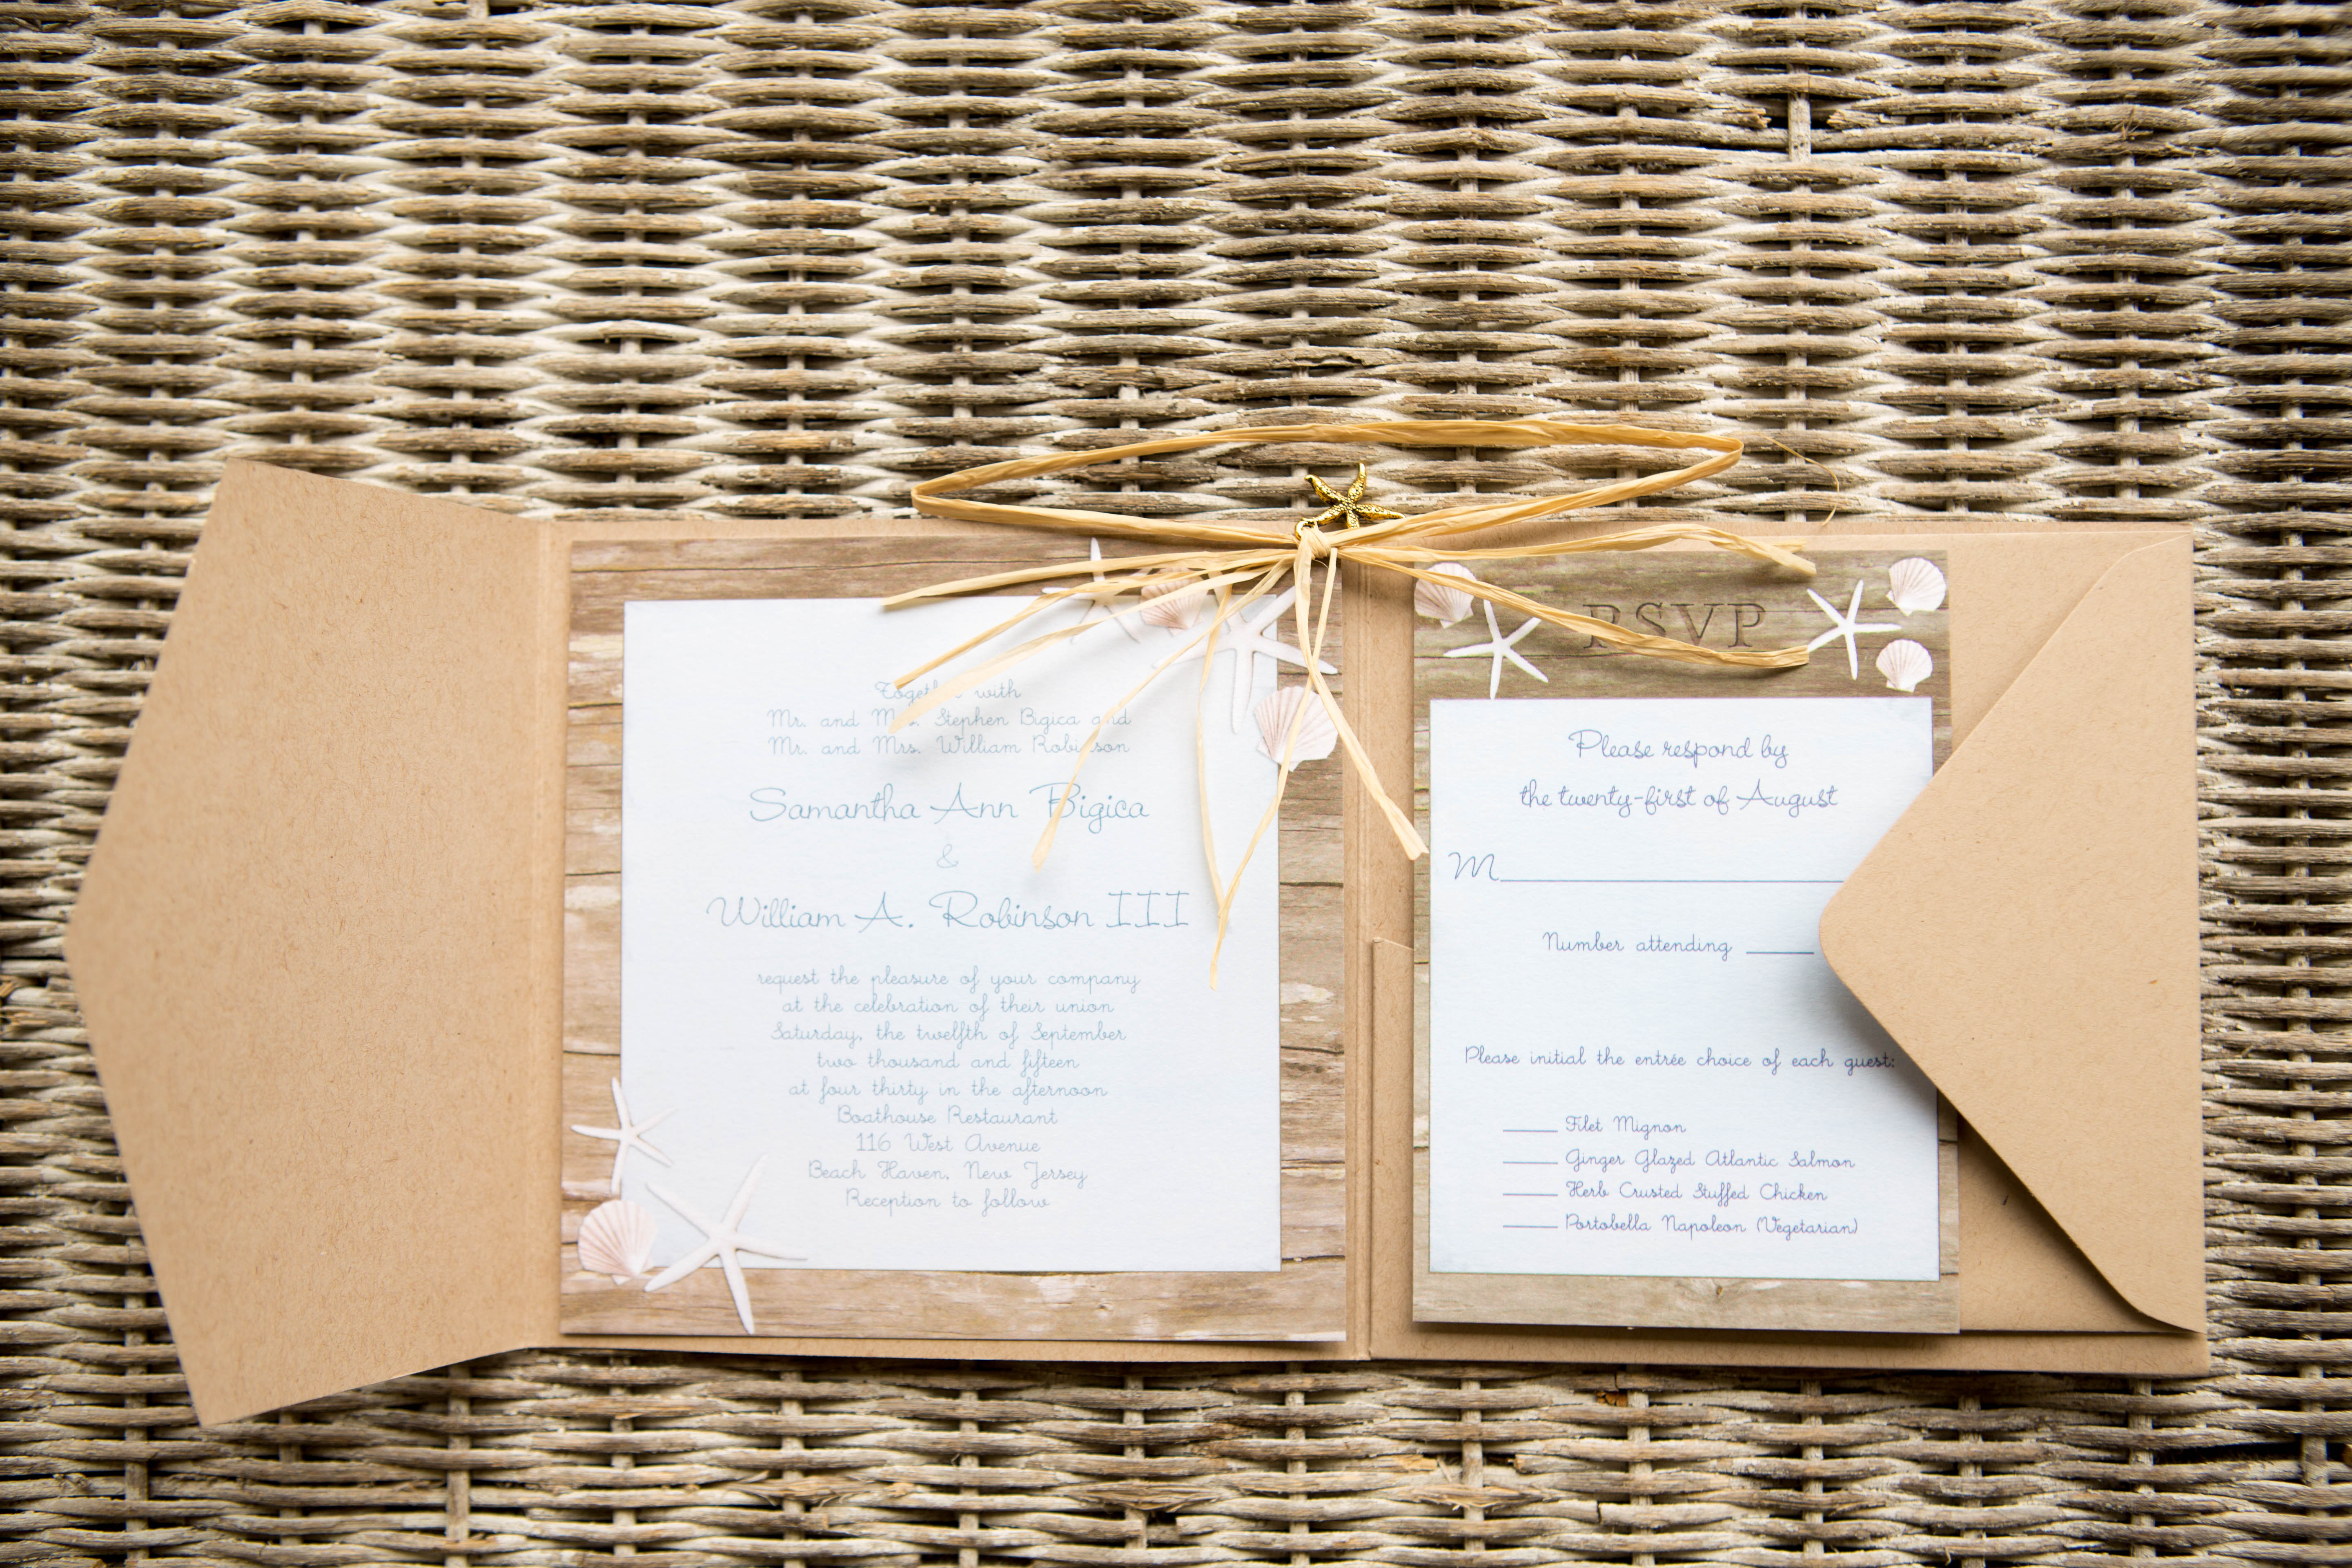 Together with
Mr. and Mrs. Stephen Bigica and
Mr. and Mrs. William Robinson
Samantha Ann Bigica
&
William A. Robinson III
request the pleasure of your company
at the celebration of their union
Saturday, the twelfth of September
two thousand and fifteen
at four thirty in the afternoon
Boathouse Restaurant
116 West Avenue
Beach Haven, New Jersey
Reception to follow
RSVP
Please respond by
the twenty-first of August
M
Number attending
Please initial the entrée choice of each guest:
Filet Mignon
Ginger Glazed Atlantic Salmon
Herb Crusted Stuffed Chicken
Portobella Napoleon (Vegetarian)